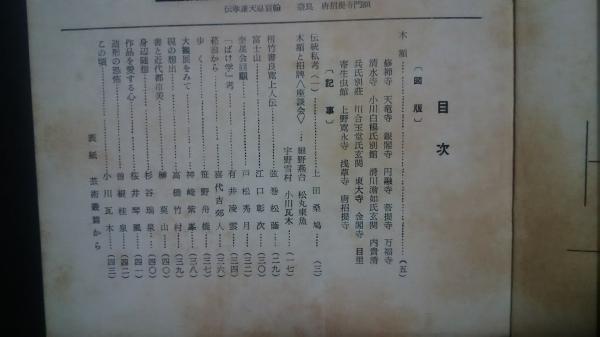 目次
木額……(五)
〔図版〕
修禅寺 天竜寺 銀閣寺 円融寺 菩提寺 万福寺
清水寺 小川白楊氏別館 滑川澹如氏玄関 内貴清
兵氏別荘 川合玉堂氏玄関 東大寺 金閣寺 目黒
寄生虫館 上野寛永寺 浅草寺 唐招提寺
〔記事〕
伝統私考(一)……上田桑鳩……(三)
木額と招牌八座談会……堀野燕台 松丸東魚
宇野雪村 小川瓦木……(一七)
竹書良寛上人伝……弦巻松蔭……(二九)
富士山……江口彰次……(三〇)
奎星会回顧……戸松秀月……(三二)
「ばけ学」考……有井凌雲……(三四)
巻頭から……喜代吉郊人……(三六)
歩く……笹野舟橋……(三七)
大観展をみて……神崎紫峯……(三八)
硯の想出……高橋竹村……(三九)
書と近代都市美……榊莫山……(四〇)
身辺随想……杉谷瑞泉……(四〇)
作品を愛する心……桜井琴風……(四一)
造形の恐怖……曽根桂泉……(四二)
この頃……小川瓦木……(四三)
表紙 芸術叢篇から
唐招提寺門額